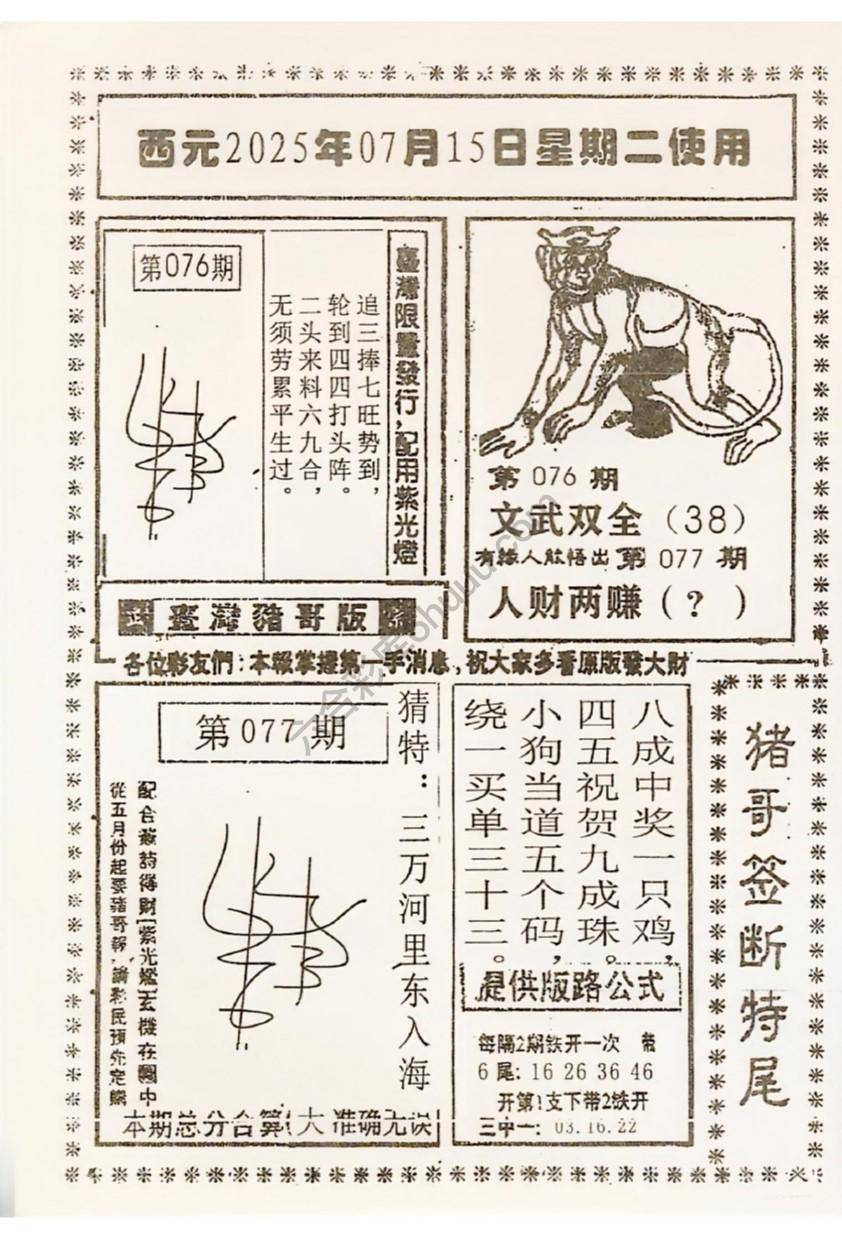 西元2025年07月15日星期二使用
第076期
臺灣限量發行，配用紫光燈
追三捧七旺势到，
轮到四四打头阵。
二头来料六九合，
无须劳累平生过。
臺灣豬哥版
第 076 期
文武双全（38）
有緣人能悟出 第 077 期
人财两赚（？）
各位彩友們：本報掌握第一手消息，祝大家多看原版發大財
第 077 期
猜特：三万河里东入海
配合叢詩得財[紫光燈]玄機在圖中
從五月份起要豬哥報，請彩民預先定購
本期总分合算(大)准确无误
八成中奖一只鸡，
四五祝贺九成珠。
小狗当道五个码，
绕一买单三十三。
提供版路公式
每隔2期铁开一次 带
6 尾：16 26 36 46
开第1支下带2铁开
三中一：03.16.22
猪哥签断特尾
六合彩库6huuu.com